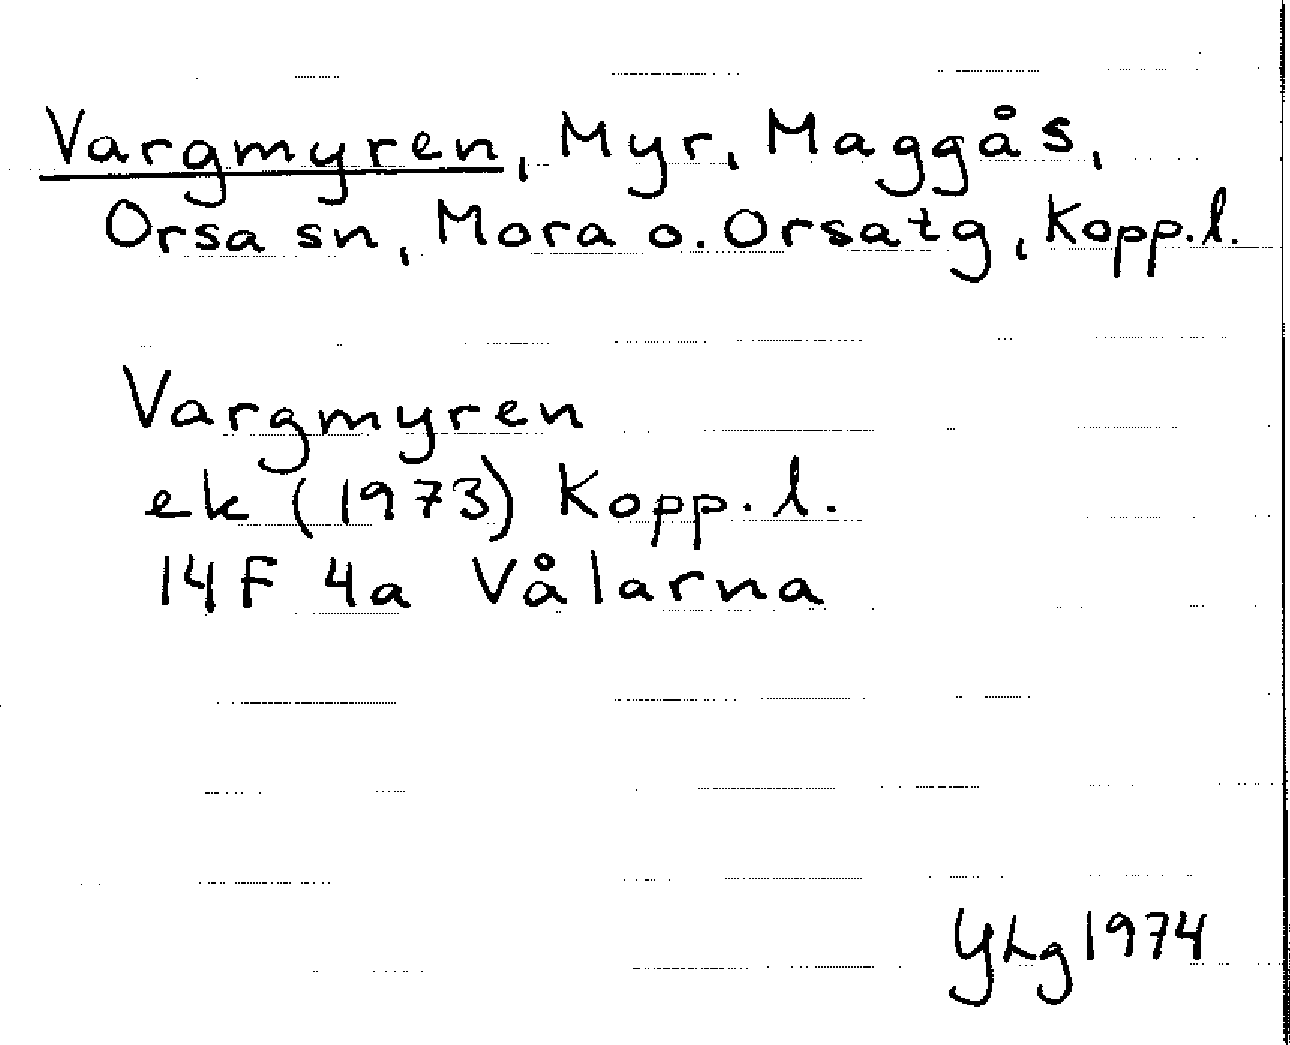 Vargmyren, Myr, Maggås,
Orsa sn, Mora o. Orsatg, Kopp.l.
Vargmyren
ek (1973) Kopp.l.
14F 4a Vålarna
YLg 1974